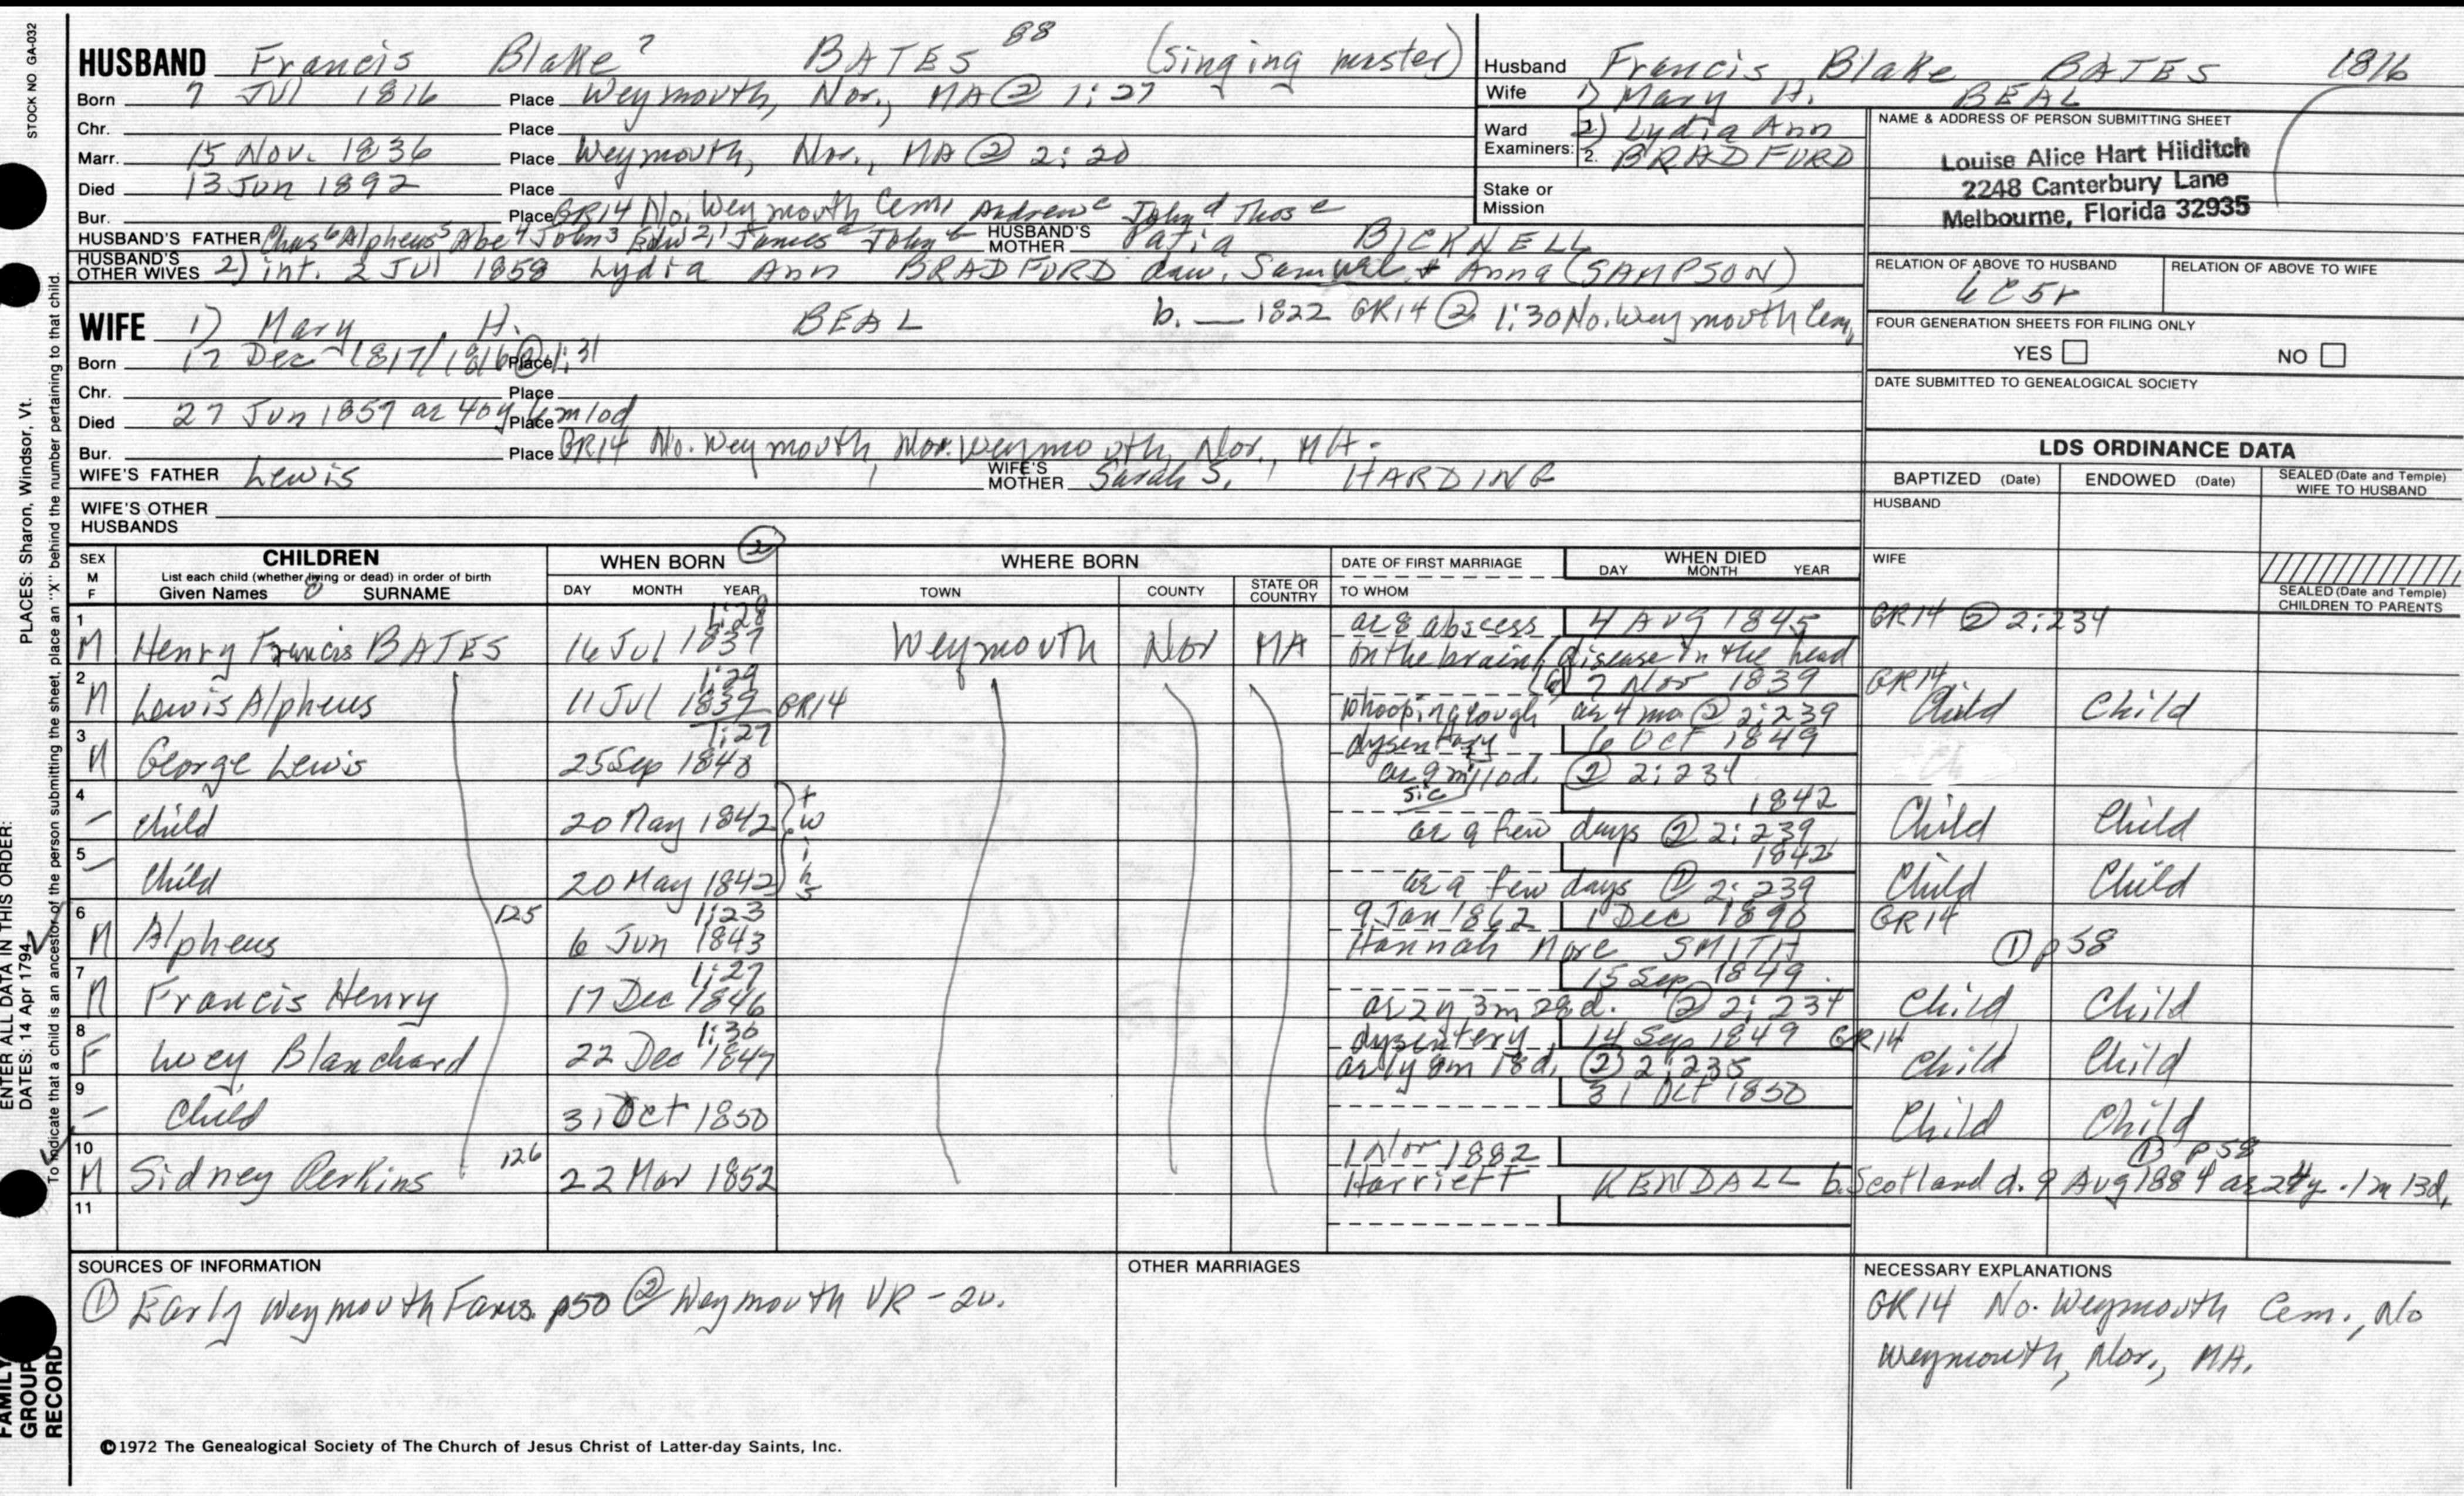 STOCK NO GA-032
HUSBAND Francis Blake 7 BATES 88 (singing master)
Born 7 Jul 1816 Place Weymouth, Nor., MA @ 1:27
Chr. Place
Marr. 15 Nov. 1836 Place Weymouth, Nor., MA @ 2:20
Died 13 Jun 1892 Place
Bur. Place GR14 No. Weymouth Cem. Andrew c John d Thos e
HUSBAND'S FATHER Chas 6 Alpheus 5 Abe 4 John 3 Edw 2, 1 James a John b HUSBAND'S MOTHER BICKNELL
HUSBAND'S OTHER WIVES 2) int. 2 Jul 1858 Lydia Ann BRADFORD dau. Samuel & Anna (SAMPSON)
WIFE 1) Mary H. BEAL b. — 1822 GR14 @ 1:30 No. Weymouth Cem,
Born 17 Dec 1817/1816 @ 1:31 Place
Chr. Place
Died 27 Jun 1857 ae 40y 6m 10d Place
Bur. Place GR14 No. Weymouth, Nor. Weymouth, Nor., MA.
WIFE'S FATHER Lewis WIFE'S MOTHER Sarah S. HARDING
WIFE'S OTHER HUSBANDS
Husband Francis Blake BATES 1816
Wife 1) Mary H. BEAL
Ward Examiners: 2) Lydia Ann
2. BRADFORD
Stake or Mission
NAME & ADDRESS OF PERSON SUBMITTING SHEET
Louise Alice Hart Hilditch
2248 Canterbury Lane
Melbourne, Florida 32935
RELATION OF ABOVE TO HUSBAND RELATION OF ABOVE TO WIFE
6C5r
FOUR GENERATION SHEETS FOR FILING ONLY
YES NO
DATE SUBMITTED TO GENEALOGICAL SOCIETY
LDS ORDINANCE DATA
BAPTIZED (Date) ENDOWED (Date) SEALED (Date and Temple) WIFE TO HUSBAND
HUSBAND
WIFE
SEALED (Date and Temple) CHILDREN TO PARENTS
SEX M F
CHILDREN
List each child (whether living or dead) in order of birth
Given Names SURNAME
WHEN BORN 2
DAY MONTH YEAR
WHERE BORN
TOWN COUNTY STATE OR COUNTRY
DATE OF FIRST MARRIAGE
TO WHOM
WHEN DIED
DAY MONTH YEAR
1 1:28 ae 8 abscess 4 Aug 1845 GR14 2 2:234
M Henry Francis BATES 16 Jul 1837 Weymouth Nor MA on the brain/disease in the head
2 1:29 7 Nov 1839 GR14
M Lewis Alpheus 11 Jul 1839 GR14 whooping cough ae 4 mo 2 2:239 Child Child
3 1:27 dysentary 6 Oct 1849
M George Lewis 25 Sep 1848 ae 9m 10d. 2 2:234
4 sic 1842
— child 20 May 1842 twins ae a few days 2 2:239 Child Child
5 1842
— Child 20 May 1842 ae a few days 2: 239 Child Child
6 125 1:23 9 Jan 1862 1 Dec 1890 GR14
M Alpheus 6 Jun 1843 Hannah SMITH 1 p 58
7 1:27 15 Sep 1849
M Francis Henry 17 Dec 1846 ae 2y 3m 28d. 2 2: 234 Child Child
8 1:30 dysentery 14 Sep 1849 GR14
F Lucy Blanchard 22 Dec 1847 ae 1y 8m 18d. 2 2:235 Child Child
9 31 Oct 1850
— Child 31 Oct 1850 Child Child
10 126 1 Nov 1882 1 p 58
M Sidney Perkins 22 Mar 1852 Harriett KENDALL b. Scotland d. 9 Aug 1884 ae 24y. 1m 13d.
11
SOURCES OF INFORMATION
1 Early Weymouth Fams. p50 2 Weymouth VR - 2v.
OTHER MARRIAGES
NECESSARY EXPLANATIONS
GR14 No. Weymouth Cem., No
Weymouth, Nor., MA.
©1972 The Genealogical Society of The Church of Jesus Christ of Latter-day Saints, Inc.
ENTER ALL DATA IN THIS ORDER:
DATES: 14 Apr 1794
PLACES: Sharon, Windsor, Vt.
To indicate that a child is an ancestor of the person submitting the sheet, place an "X" behind the number pertaining to that child.
FAMILY
GROUP
RECORD